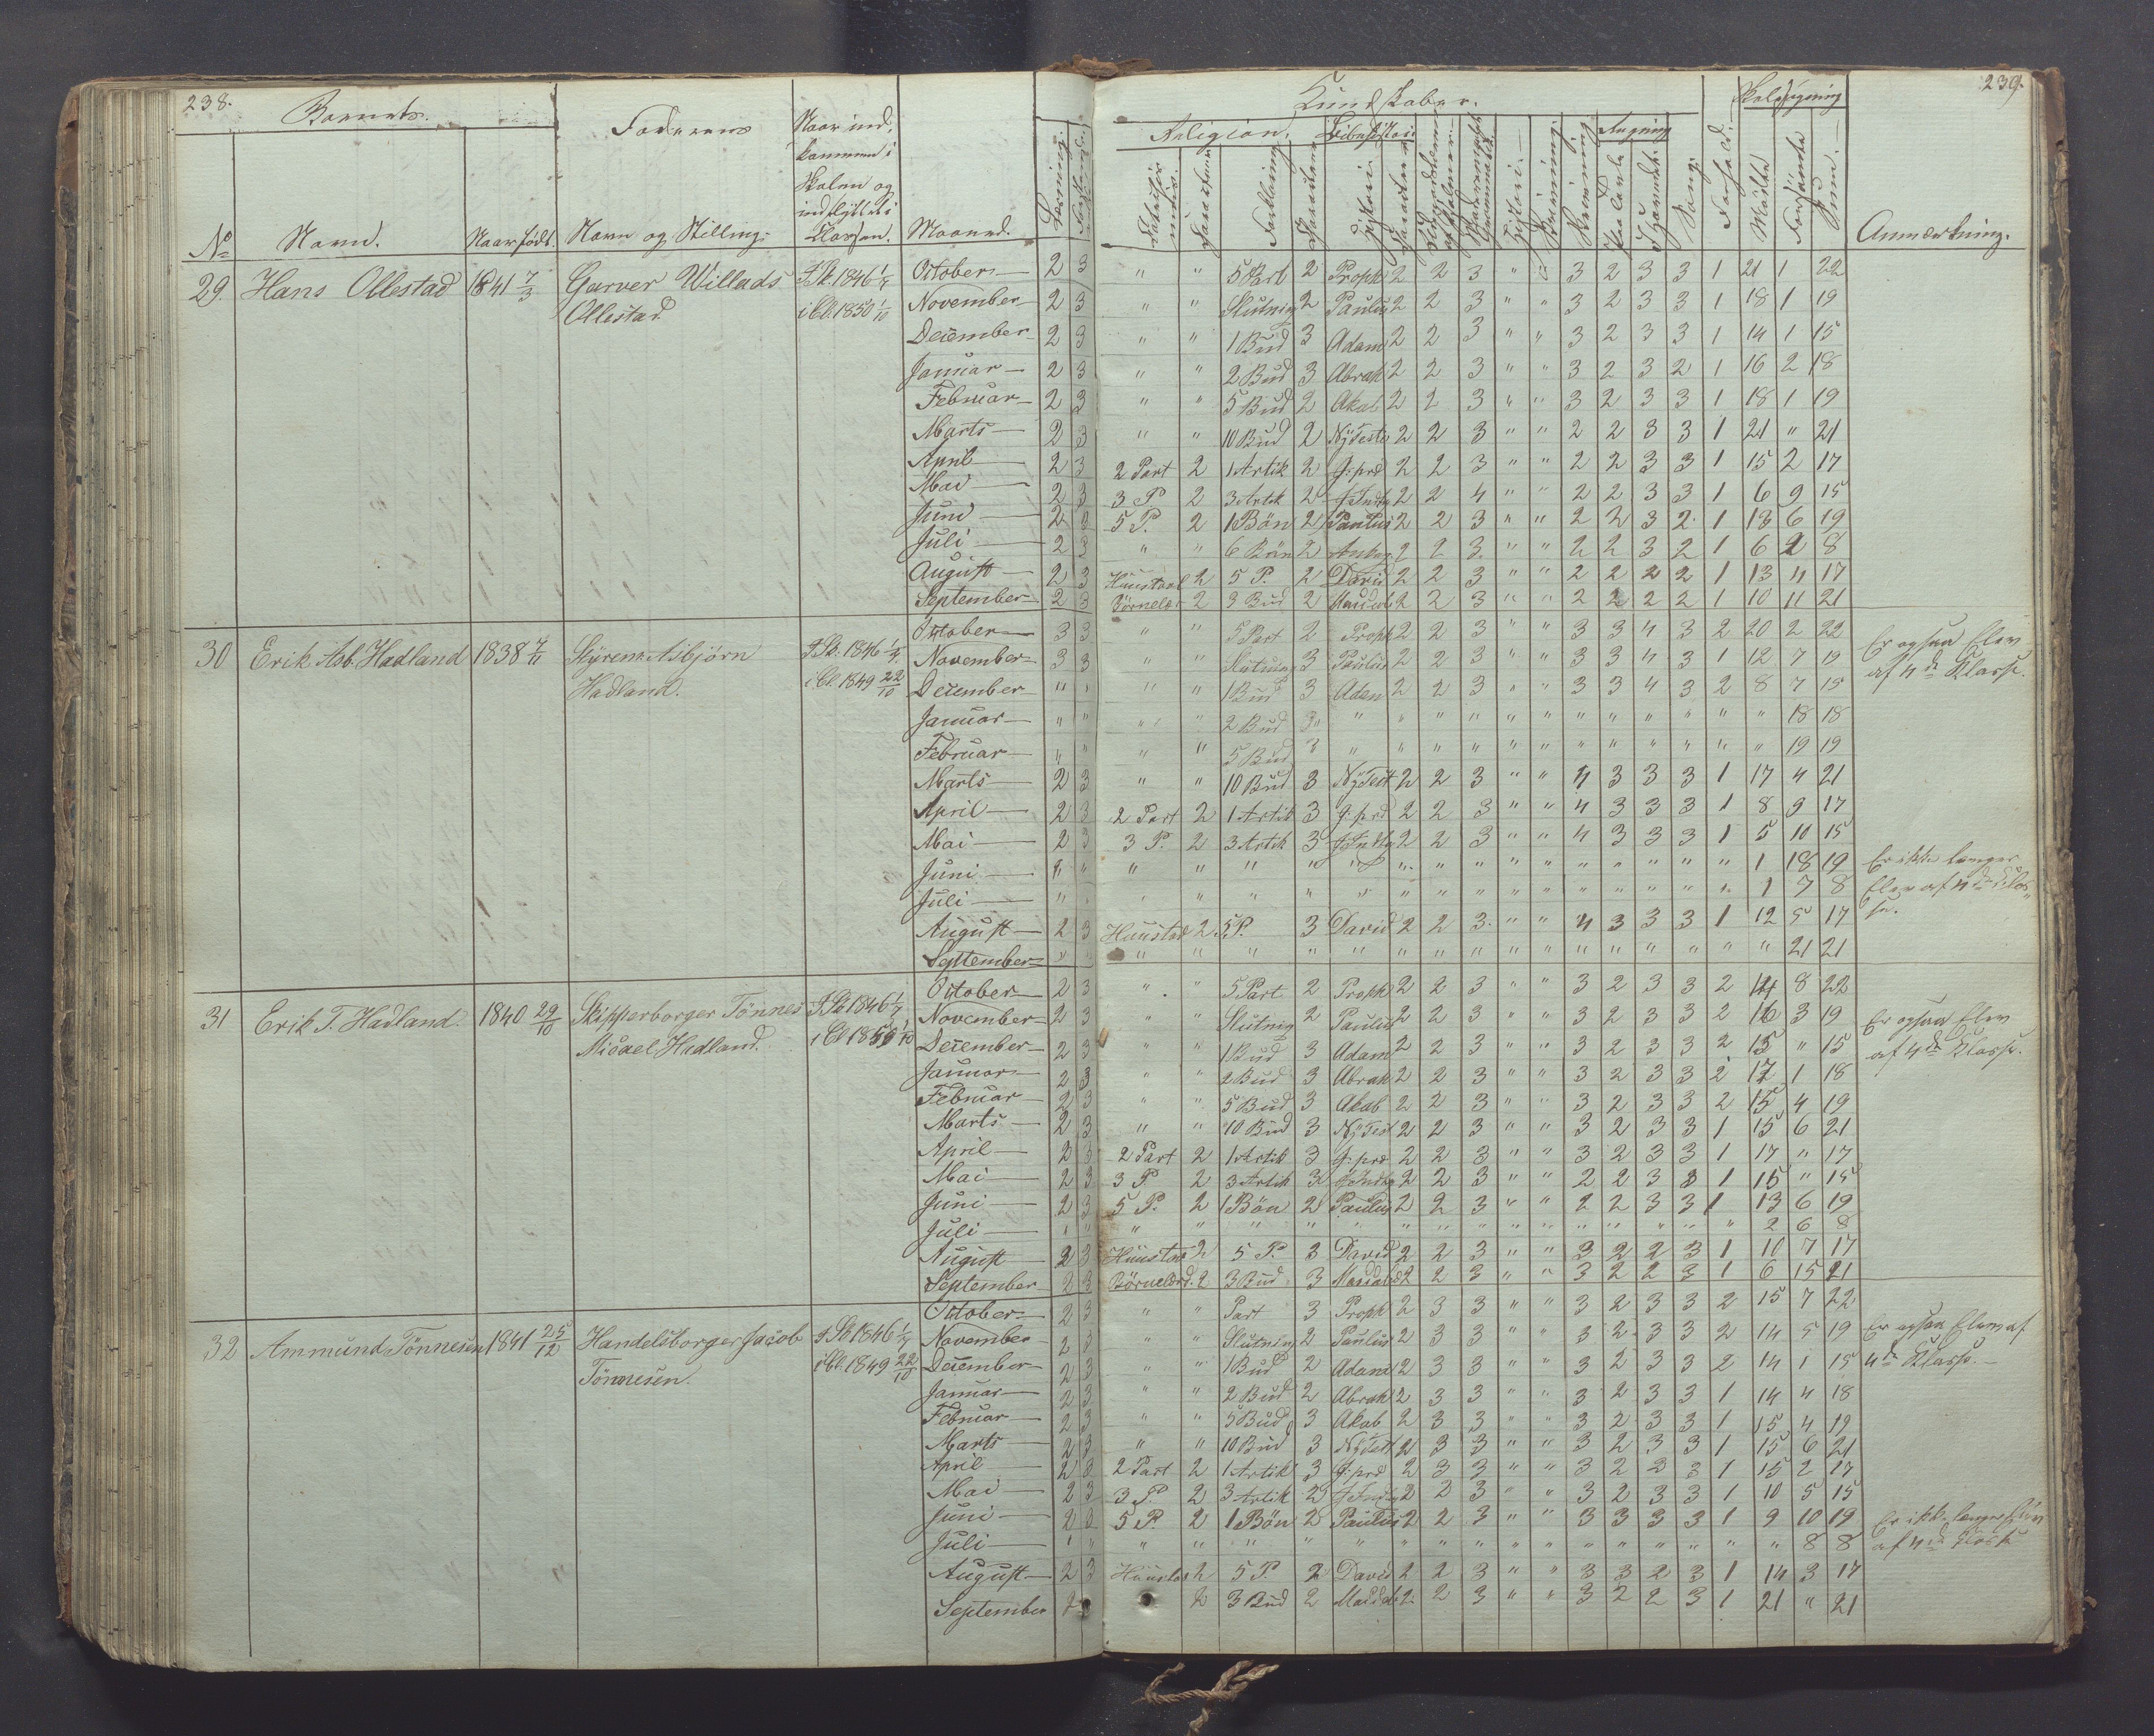 238.
Barnets.
Faderens
Naar ind,
kommen i
Skolen og
indflyttet i
Classen.
No
Navn.
Naar født.
Navn og Stilling.
Maaned.
29 Hans Ollestad 1841 7/3 Garver Willads
Ollestad
I Sk. 1846 1/7
i Cl. 1850 1/10
October 2 3
November 2 3
December 2 3
Januar 2 3
Februar 2 3
Marts 2 3
April 2 3
Mai 2 3
Juni 2 3
Juli 2 3
August 2 3
September 2 3
30 Erik Asb. Hadland 1838 7/11 Styrem. Asbjørn
Hadland.
I Sk. 1846 1/7
i Cl. 1849 22/10
October 3 3
November 3 3
December " "
Januar " "
Februar " "
Marts 2 3
April 2 3
Mai 2 3
Juni " "
Juli " "
August 2 3
September " "
31 Erik T. Hadland. 1840 29/10 Skipperborger Tönnes
Micael Hadland.
I Sk 1846 1/7
October 2 3
November 2 3
December 2 3
Januar 2 3
Februar 2 3
Marts 2 3
April 2 3
Mai 2 3
Juni 2 3
Juli " "
August 2 3
September 2 3
32 Ammund Tönnesen 1841 25/12 Handelsborger Jacob
Tönnesen.
I Sk 1846 1/7
i Cl. 1849 22/10
October 2 3
November 2 3
December 2 3
Januar 2 3
Februar 2 3
Marts 2 3
April 2 3
Mai 2 3
Juni 2 3
Juli " "
August 2 3
September
239.
Kundskaber.
Skolesøgning
Religion.
Bibelhistorie
Regning
Forklaring
Historie
Skrivning
Sang.
Forhold.
Mødte
Forsømte
Sum.
Anmærkning.
" " 5 Part 2 Proph 2 2 3 " " 3 2 3 3 1 21 1 22
" " Slutnig 2 Paulus 2 2 3 " " 3 2 3 3 1 18 1 19
" " 1 Bud 3 Adam 2 2 3 " " 3 2 3 3 1 14 1 15
" " 2 Bud 3 Abrah 2 2 3 " " 3 2 3 2 1 16 2 18
" " 5 Bud 2 Akab 2 2 3 " " 3 2 3 3 1 18 1 19
" " 10 Bud 2 Ny Teste 2 2 3 " " 2 2 3 3 1 21 " 21
2 Part 2 1 Artik 2 J: prd 2 2 3 " " 2 2 3 3 1 15 2 17
3 P. 2 3 Artk 2 J Indtg 2 2 4 " " 2 2 3 3 1 6 9 15
5 P. 2 1 Bön 2 Paulus 2 2 3 " " 2 2 3 2 1 13 6 19
" " 6 Bön 2 2 2 3 " " 2 2 3 2 1 6 2 8
Huustavl 2 5 P. 2 David 2 2 3 " " 2 2 2 2 1 13 4 17
Börnelær 2 3 Bud 2 2 2 3 " " 2 2 2 2 1 10 11 21
" " 5 Part 2 Proph 2 2 3 " " 3 3 4 3 2 20 2 22
" " Slutnig 3 Paulus 2 2 3 " " 3 3 4 3 1 12 7 19
" " 1 Bud 3 Adam 2 2 3 " " 3 3 4 3 2 8 7 15
" " 2 Bud 3 " " " " " " " " " " " " " 18 18
" " 5 Bud 3 " " " " " " " " " " " " 19 19
" " 10 Bud 3 Ny Test 2 2 3 " " 4 3 3 3 1 17 4 21
2 Part 2 1 Artik 3 J: prd 2 2 3 " " 4 3 3 3 1 8 9 17
3 P. 2 3 Artk 3 J Indtg 2 2 3 " " 4 3 3 3 1 5 10 15
" " " " " " " " " " " " " " " 1 18 19
" " " " " " " " " " " " " " " 1 7 8
Huustav 2 5 P. 3 David 2 2 3 " " 4 3 3 3 1 12 5 17
" " " " " " " " " " " " " " " " 21 21
Er ogsaa Elev
af 4de Klasse.
Er ikke længer
Elev af 4de Klas
se.
" " 5 Part 2 Proph 2 2 3 " " 3 2 3 3 2 14 8 22
" " Slutnig 2 Paulus 2 2 3 " " 3 2 3 3 2 16 3 19
" " 1 Bud 3 Adam 2 2 3 " " 3 2 3 3 2 15 " 15
" " 2 Bud 3 Abrah 2 2 3 " " 3 2 3 3 2 17 1 18
" " 5 Bud 3 Akab 2 2 3 " " 3 2 3 3 2 15 4 19
" " 10 Bud 3 Ny Test 2 2 3 " " 3 2 3 3 1 15 6 21
2 Part 2 1 Artik 3 J: prd 2 2 3 " " 3 2 3 3 1 17 " 17
3 P. 2 3 Artik 3 J Indtg 2 2 3 " " 2 2 3 3 1 15 " 15
5 P. 2 1 Bön 2 Paulus 2 2 3 " " 2 2 3 3 1 13 6 19
" " " " " " " " " " " " " " " 2 6 8
Huustav 2 5 P. 3 David 2 2 3 " " 3 2 2 3 1 10 7 17
Börnelærd. 2 3 Bud 3 2 2 3 " " 3 2 2 3 1 6 15 21
Er ogsaa Elev
af 4de Klasse.
" " Part 3 Proph 2 3 3 " " 3 2 3 3 2 15 7 22
" " Slutnig 2 Paulus 2 3 3 " " 3 2 3 3 2 14 5 19
" " 1 Bud 2 Adam 2 3 3 " " 3 2 3 3 2 14 1 15
" " 2 Bud 2 Abrah 2 3 3 " " 3 2 3 3 1 14 4 18
" " 5 Bud 3 Akab 2 3 3 " " 3 2 3 3 1 15 4 19
" " 10 Bud 3 Ny Test 2 3 3 " " 3 2 3 3 1 15 6 21
2 Part 2 1 Artik 3 J: prd 2 3 3 " " 3 2 3 3 1 15 2 17
3 P. 2 3 Artik 2 J Indtg 2 2 3 " " 3 2 3 3 1 10 5 15
5 P. 2 1 Bön 2 Paulus 2 2 3 " " 3 3 3 3 1 9 10 19
" " " " " " " " " " " " " " " " 8 8
Huustav 2 5 P. 2 David 2 2 3 " " 3 3 2 3 1 14 3 17
2 3 Bud 2 2 2 3 " " 3 2 2 3 1 21 " 21
Er ogsaa Elev af
4de Klasse.
Er ikke længer Elev
af 4de Klasse